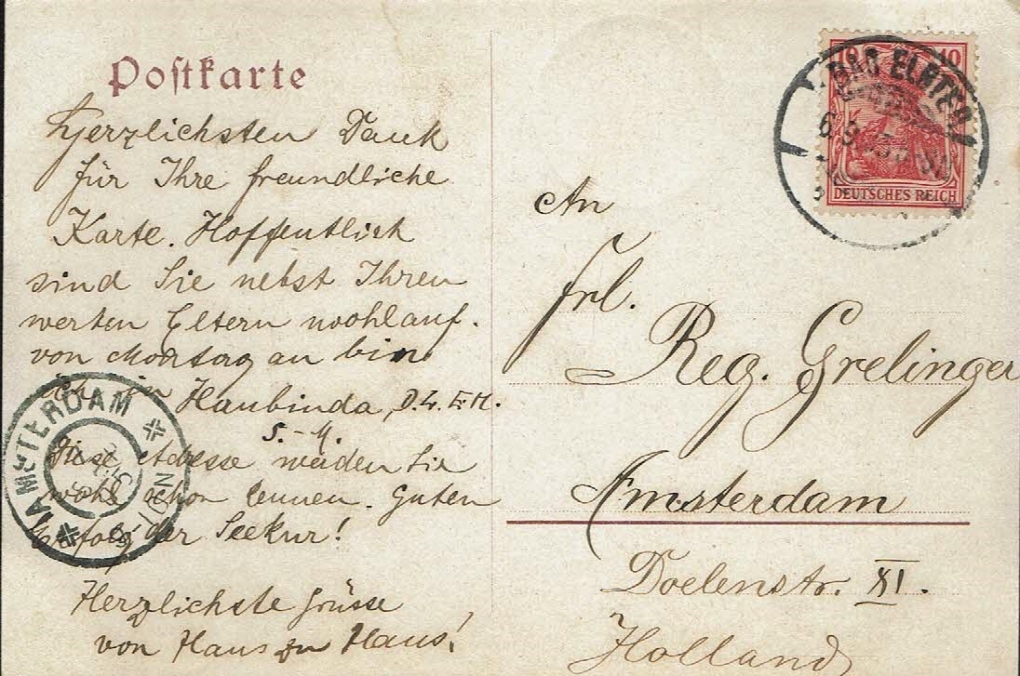 Postkarte
Herzlichsten Dank
für Ihre freundliche
Karte. Hoffentlich
sind Sie nebst Ihren
werten Eltern wohlauf.
von Montag an bin
ich in Haubinda, D.L.E.H.
S.-M.
Diese Adresse werden Sie
wohl schon kennen. Guten
Erfolg der Seekur!
Herzlichste Grüsse
von Haus zu Haus!
10 10
DEUTSCHES REICH
BAD ELSTER
6 9
An
Frl.
Reg. Grelinger
Amsterdam
Doelenstr. XI.
Holland
AMSTERDAM